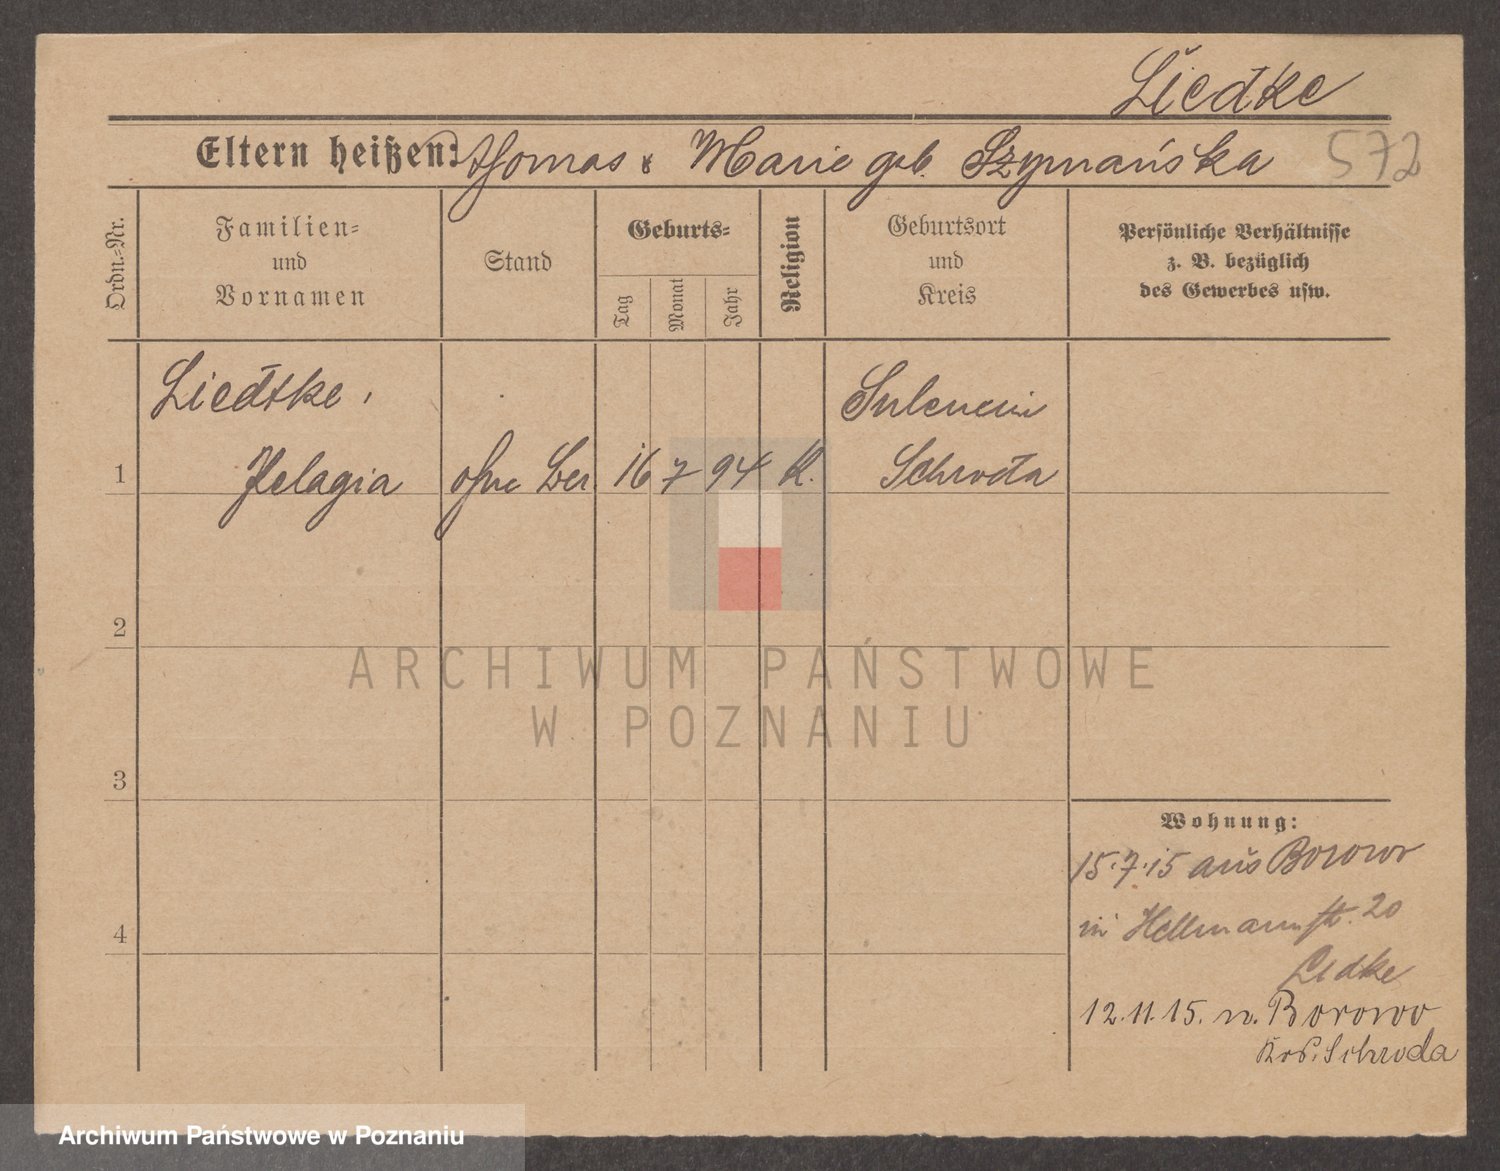 Liedke
Eltern heißen: Thomas & Marie geb. Szymańska
572
Ordn.-Nr.
Familien-
und
Vornamen
Stand
Geburts-
Tag
Monat
Jahr
Religion
Geburtsort
und
Kreis
Persönliche Verhältnisse
z. B. bezüglich
des Gewerbes usw.
Liedtke,
1 Pelagia ohne Ber 16 7 94 K.
Schroda
2
3
4
Wohnung:
15.7.15 aus Borowo
in Hellmannstr. 20
Ledke
12.11.15. n. Borowo
Schroda
ARCHIWUM PAŃSTWOWE
W POZNANIU
Archiwum Państwowe w Poznaniu